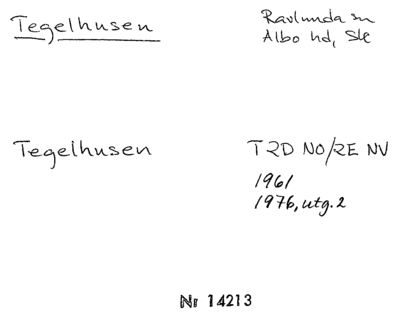 Tegelhusen
Ravlunda sn
Albo hd, Sk
Tegelhusen
T 2D NO/2E NV
1961
1976, utg. 2
Nr 14213